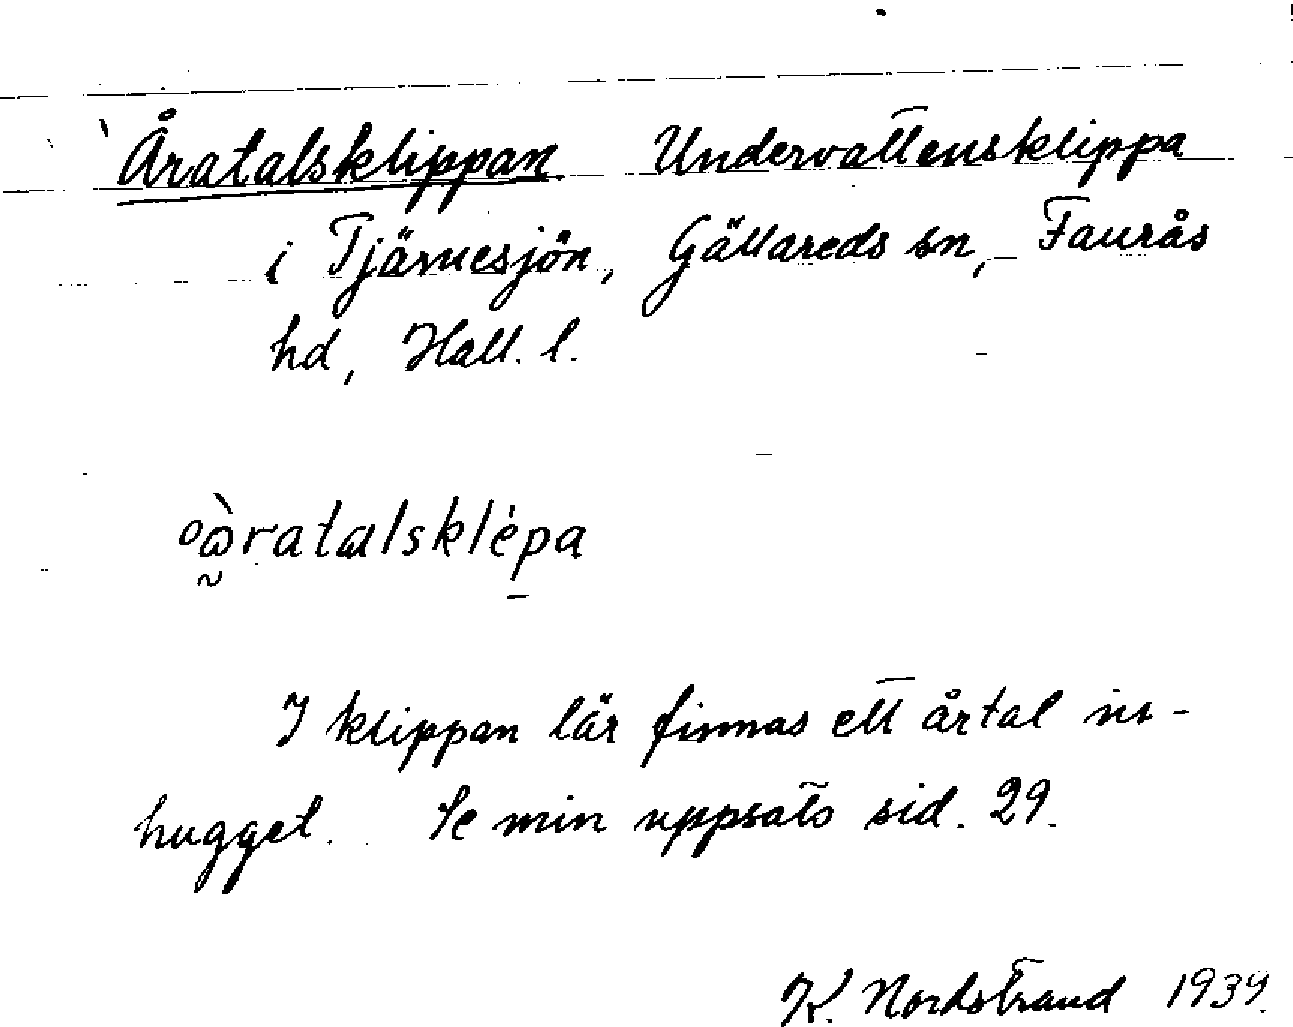 Åratalsklippan Undervattensklippa
i Tjärnesjön, Gällareds sn, Faurås
hd, Hall. l.
I klippan lär finnas ett årtal in-
hugget. Se min uppsats sid. 29.
K. Nordstrand 1934.